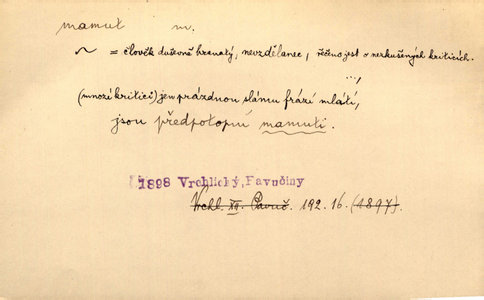 mamut m.
~ = člověk duševně hranatý, nevzdělanec, řečeno jest o nezkušených kriticích.
...,
(mnozí kritici) jen prázdnou slámu frází mlátí,
jsou předpotopní mamuti.
1898 Vrchlický, Pavučiny
Vrchl. XII. Pavuč. 192. 16. (1897).